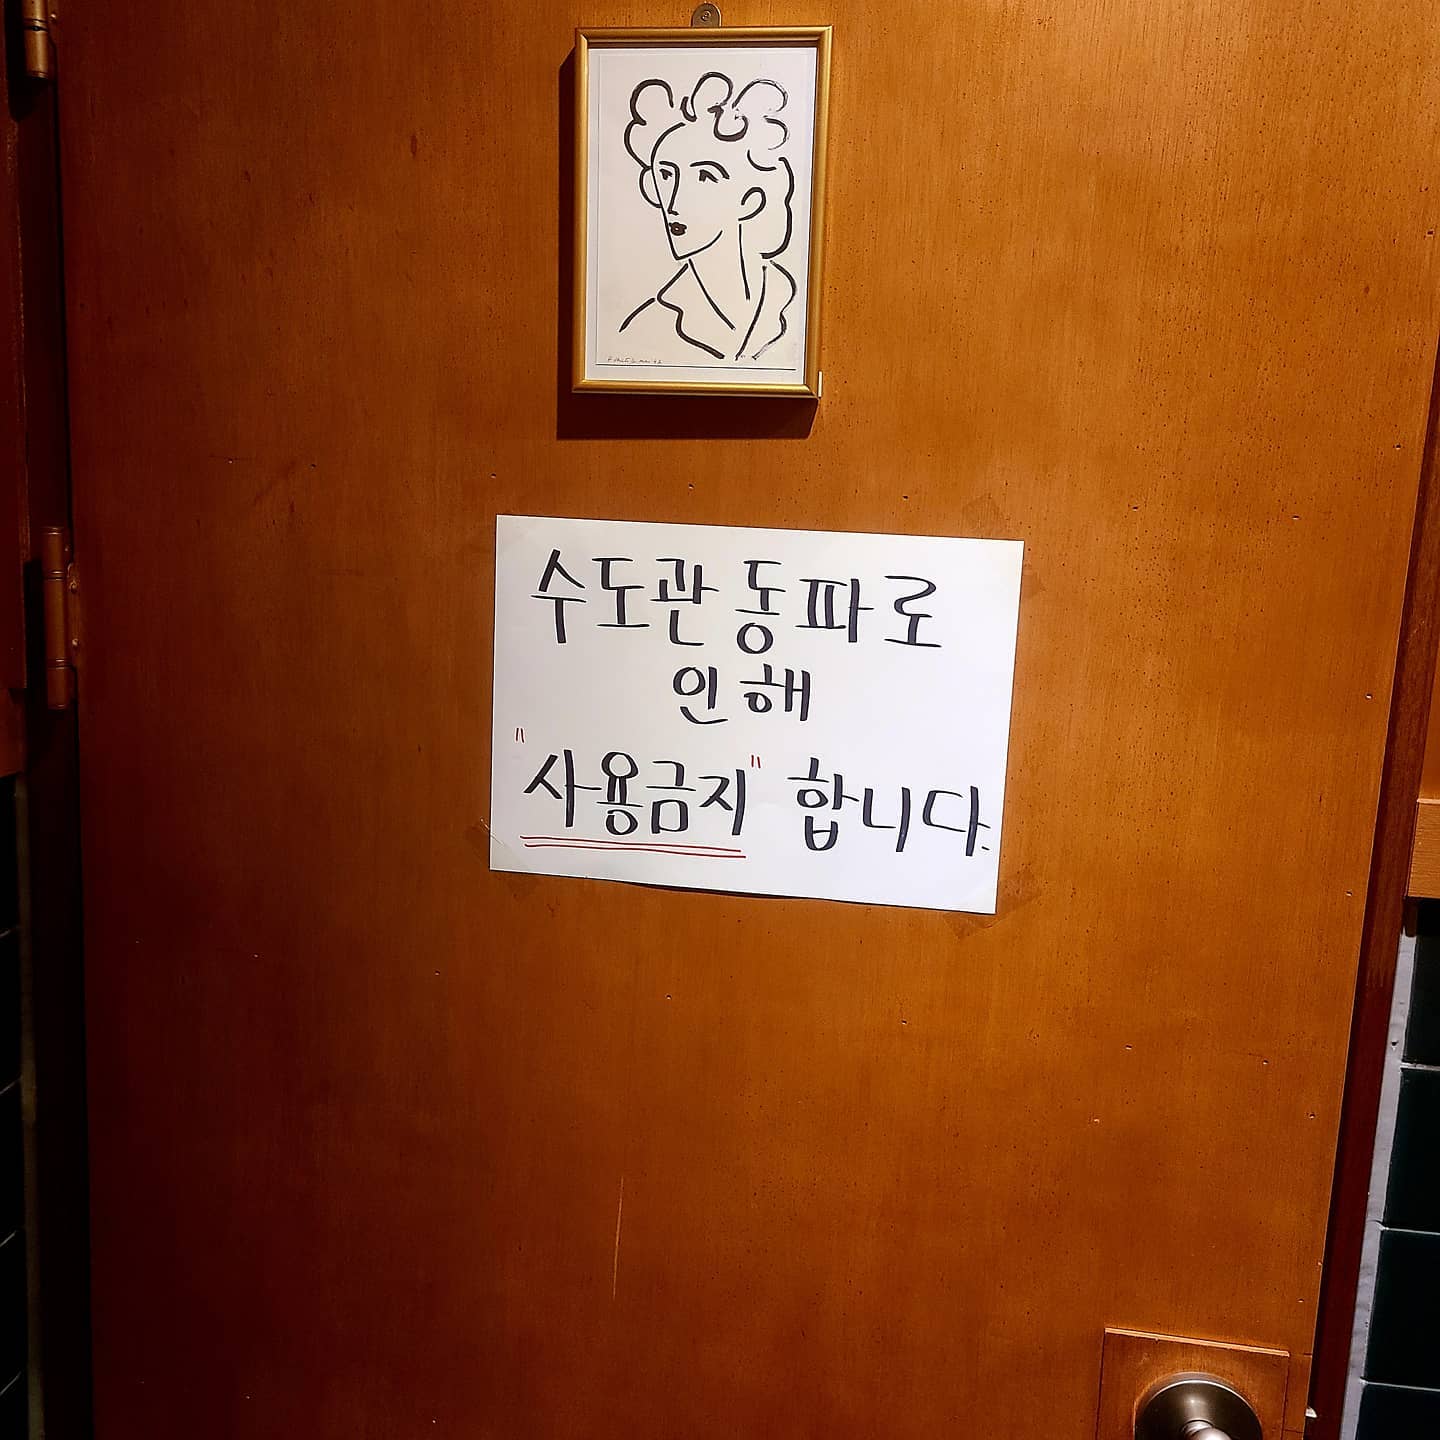 수도관 동파로
인해
"사용금지" 합니다.